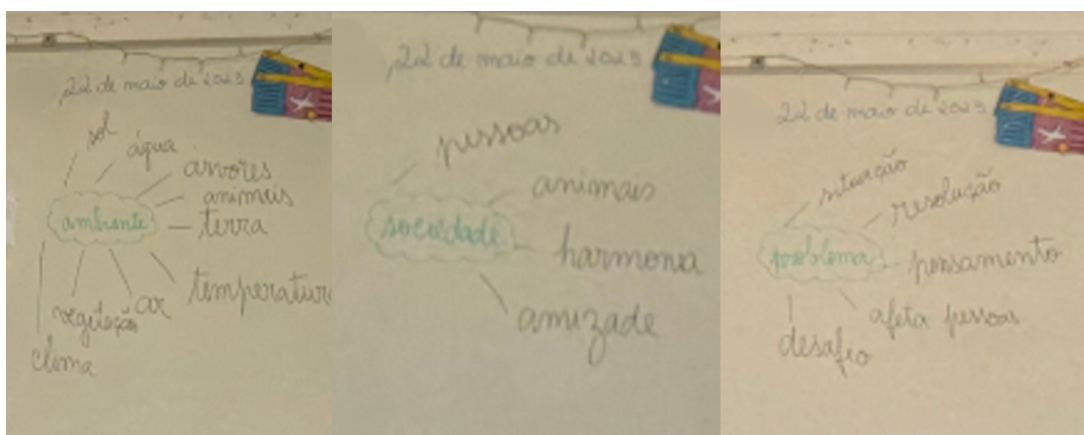 22 de maio de 2023
sol
água
árvores
animais
terra
ambiente
temperatura
ar
vegetação
clima
22 de maio de 2023
pessoas
animais
sociedade
harmonia
amizade
22 de maio de 2023
situação
resolução
problema
pensamento
afeta pessoas
desafio